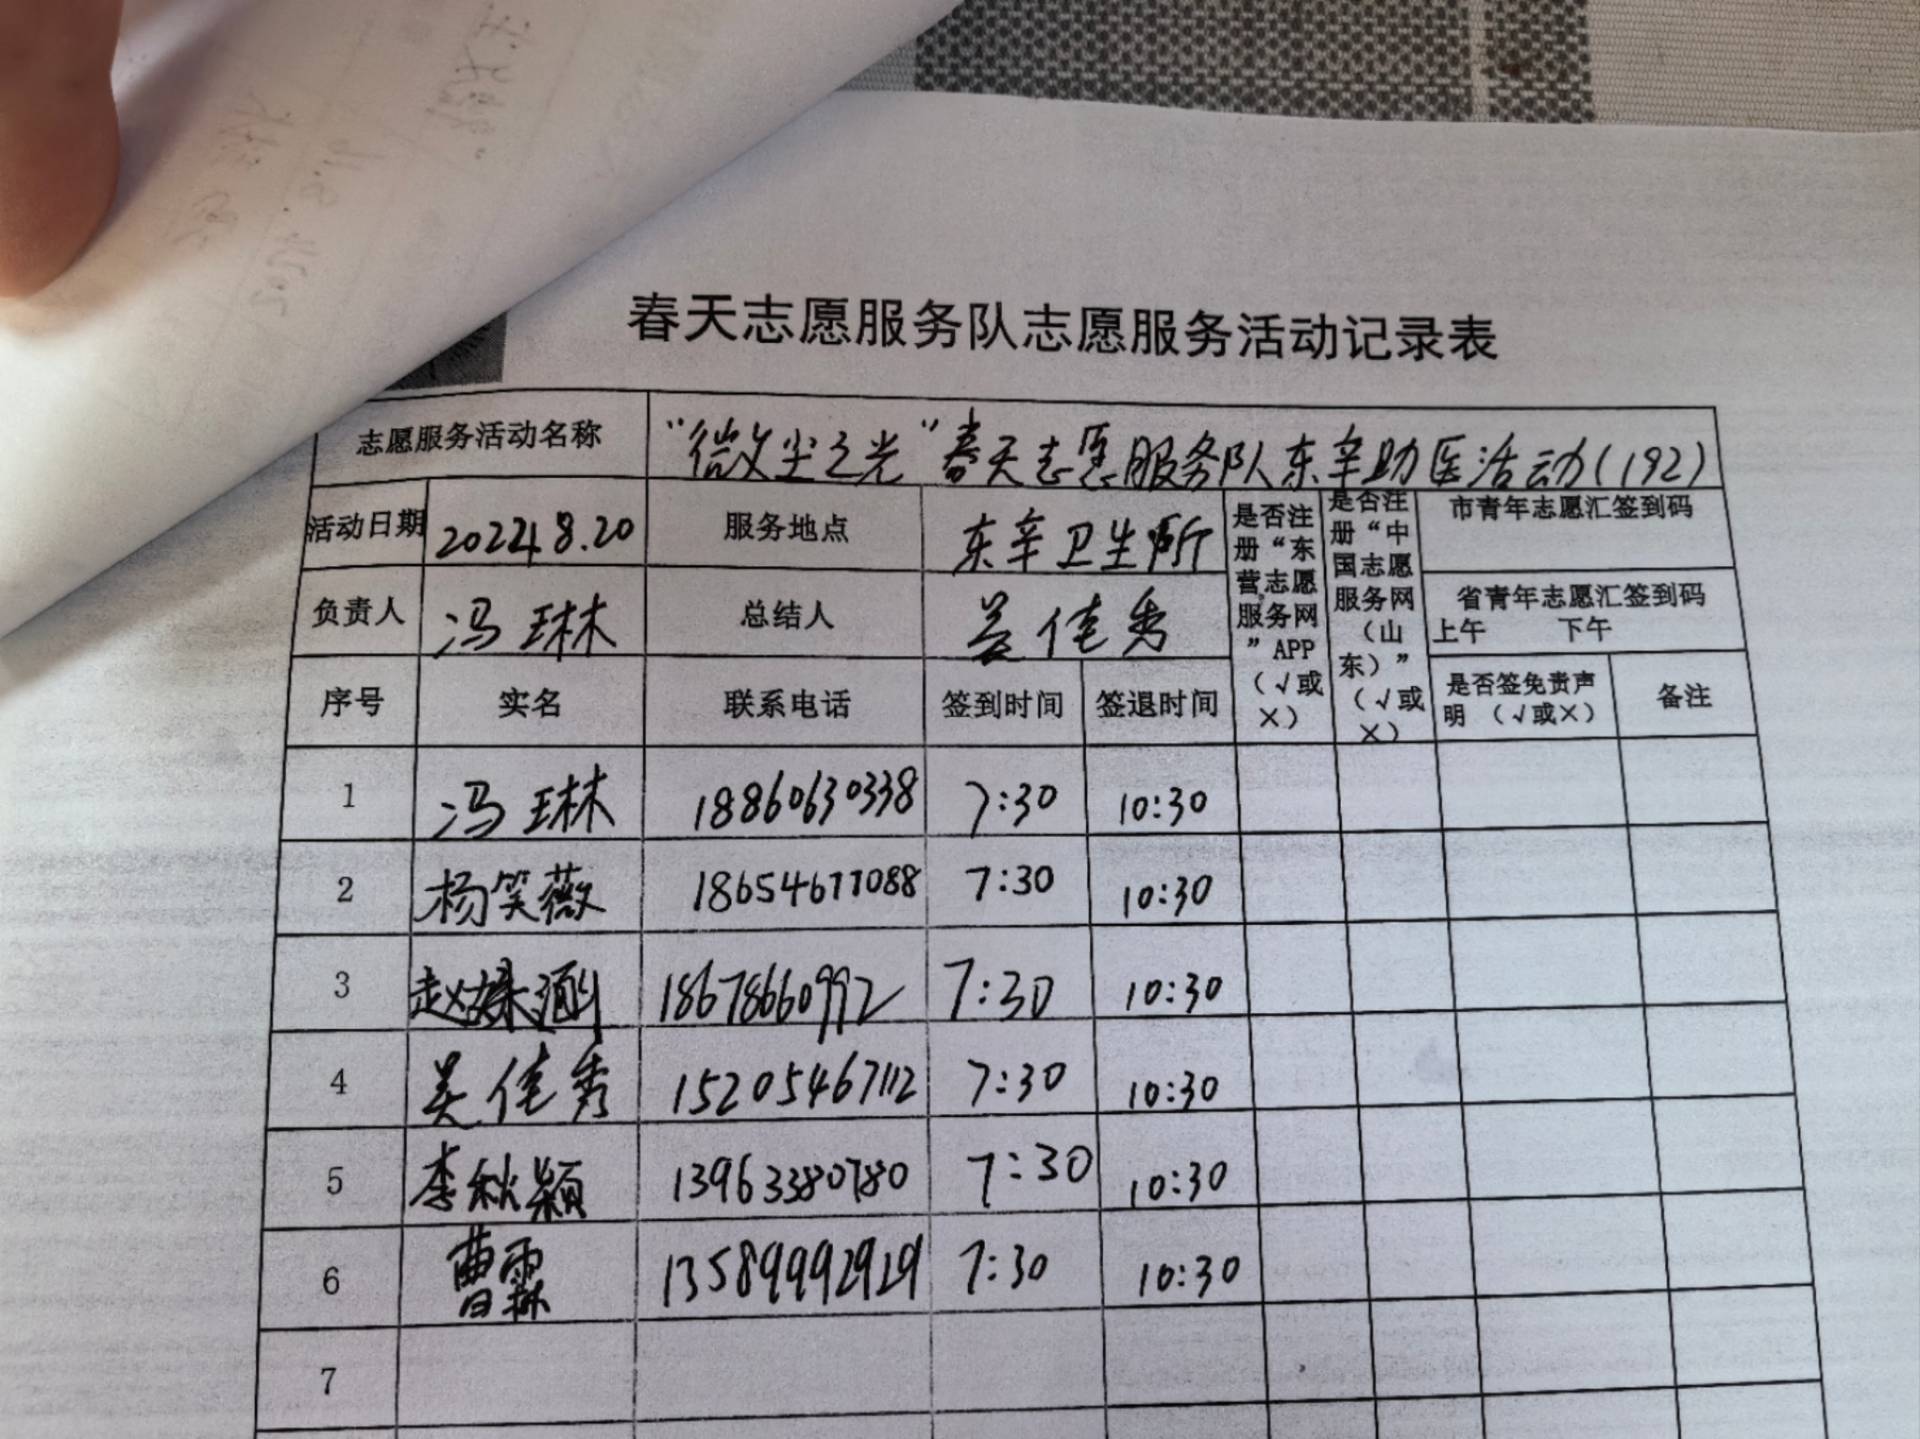 春天志愿服务队志愿服务活动记录表
志愿服务活动名称 “微尘之光”春天志愿服务队东辛助医活动(192)
活动日期 2022.8.20 服务地点 东辛卫生所 是否注册“东营志愿服务网”APP（√或×） 是否注册“中国志愿服务网（山东）”（√或×） 市青年志愿汇签到码
负责人 冯琳 总结人 吴佳秀 省青年志愿汇签到码
上午 下午
序号 实名 联系电话 签到时间 签退时间 是否签免责声明（√或×） 备注
1 冯琳 18860630338 7:30 10:30
2 杨笑薇 18654677088 7:30 10:30
3 赵姝涵 18678660992 7:30 10:30
4 吴佳秀 15205467112 7:30 10:30
5 李秋颖 13963380780 7:30 10:30
6 曹霖 13589992929 7:30 10:30
7